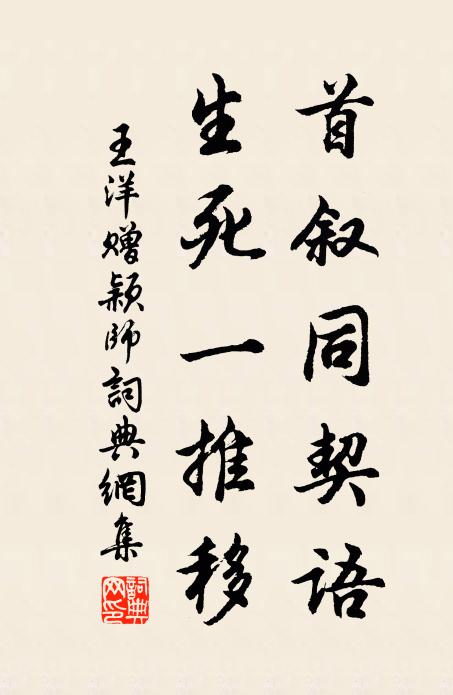 首叙同契语
生死一推移
王洋赠颖师詞典網集
詞典網印